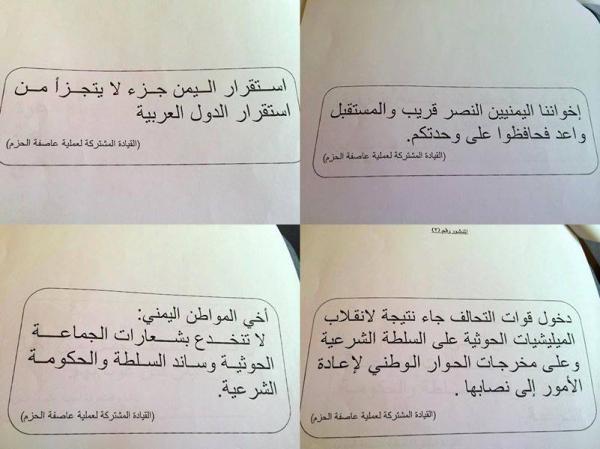 استقرار اليمن جزء لا يتجزأ من
استقرار الدول العربية
(القيادة المشتركة لعملية عاصفة الحزم)
إخواننا اليمنيين النصر قريب والمستقبل
واعد فحافظوا على وحدتكم.
(القيادة المشتركة لعملية عاصفة الحزم)
أخي المواطن اليمني:
لا تنخدع بشعارات الجماعة
الحوثية وساند السلطة والحكومة
الشرعية.
(القيادة المشتركة لعملية عاصفة الحزم)
المنشور رقم (٢)
دخول قوات التحالف جاء نتيجة لانقلاب
الميليشيات الحوثية على السلطة الشرعية
وعلى مخرجات الحوار الوطني لإعادة
الأمور إلى نصابها .
(القيادة المشتركة لعملية عاصفة الحزم)